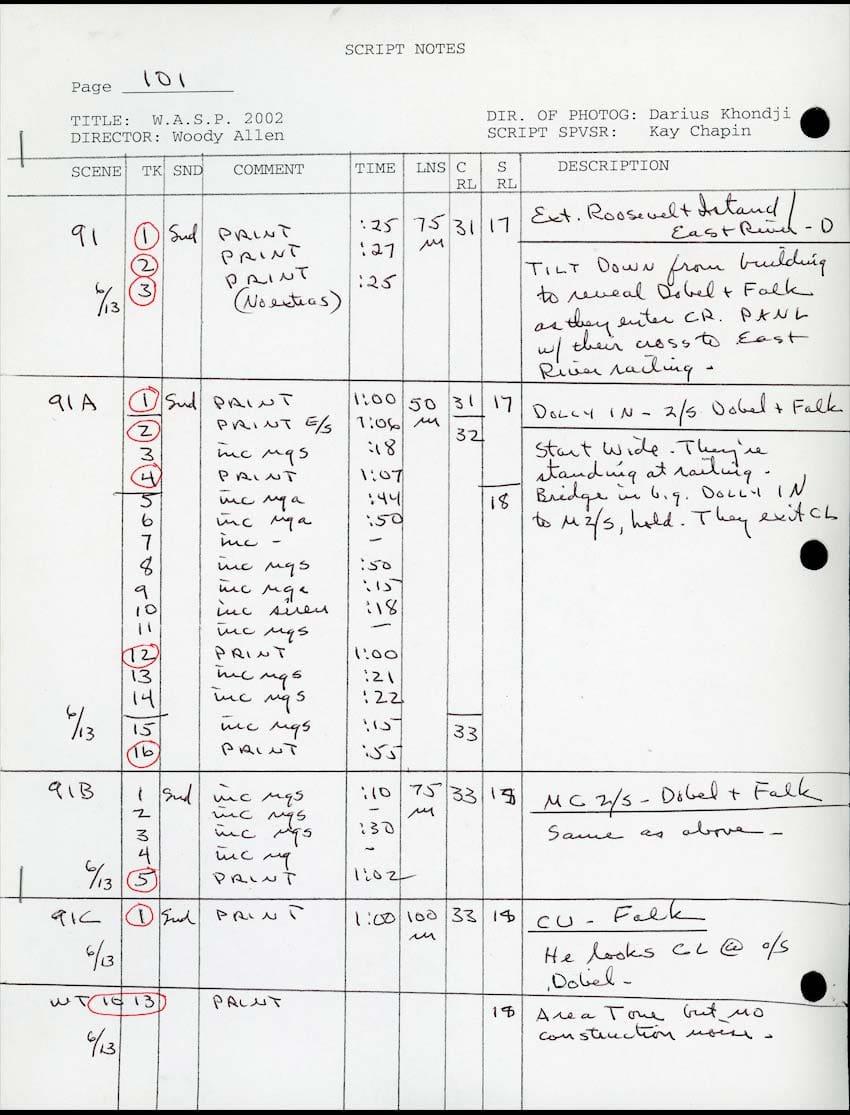 SCRIPT NOTES
Page 101
TITLE: W.A.S.P. 2002 DIR. OF PHOTOG: Darius Khondji
DIRECTOR: Woody Allen SCRIPT SPVSR: Kay Chapin
SCENE TK SND COMMENT TIME LNS C RL S RL DESCRIPTION
91 1 Snd PRINT :25 75 m 31 17 Ext. Roosevelt Island /
East River - D
2 PRINT :27
6/13 3 PRINT :25
(No extras)
TILT DOWN from building
to reveal Dobel + Falk
as they enter CR. PAN L
w/ their cross to East
River railing -
91A 1 Snd PRINT 1:00 50 m 31 17 DOLLY IN - 2/S Dobel + Falk
2 PRINT E/S 1:06 32
3 inc ngs :18 Start Wide. They're
4 PRINT 1:07 standing at railing.
5 inc nga :44 18 Bridge in b.g. DOLLY IN
6 inc nga :50 to M2/S, hold. They exit CL
7 inc - -
8 inc ngs :50
9 inc nga :15
10 inc siren :18
11 inc ngs -
12 PRINT 1:00
13 inc ngs :21
14 inc ngs :22
6/13 15 inc ngs :15 33
16 PRINT :55
91B 1 Snd inc ngs :10 75 m 33 18 MC 2/S - Dobel + Falk
2 inc ngs -
3 inc ngs :30 Same as above -
4 inc ng -
6/13 5 PRINT 1:02
91C 1 Snd PRINT 1:00 100 m 33 18 CU - Falk
6/13 He looks CL @ o/s
Dobel -
WT 1013 PRINT 18 Area Tone but no
6/13 construction noise.